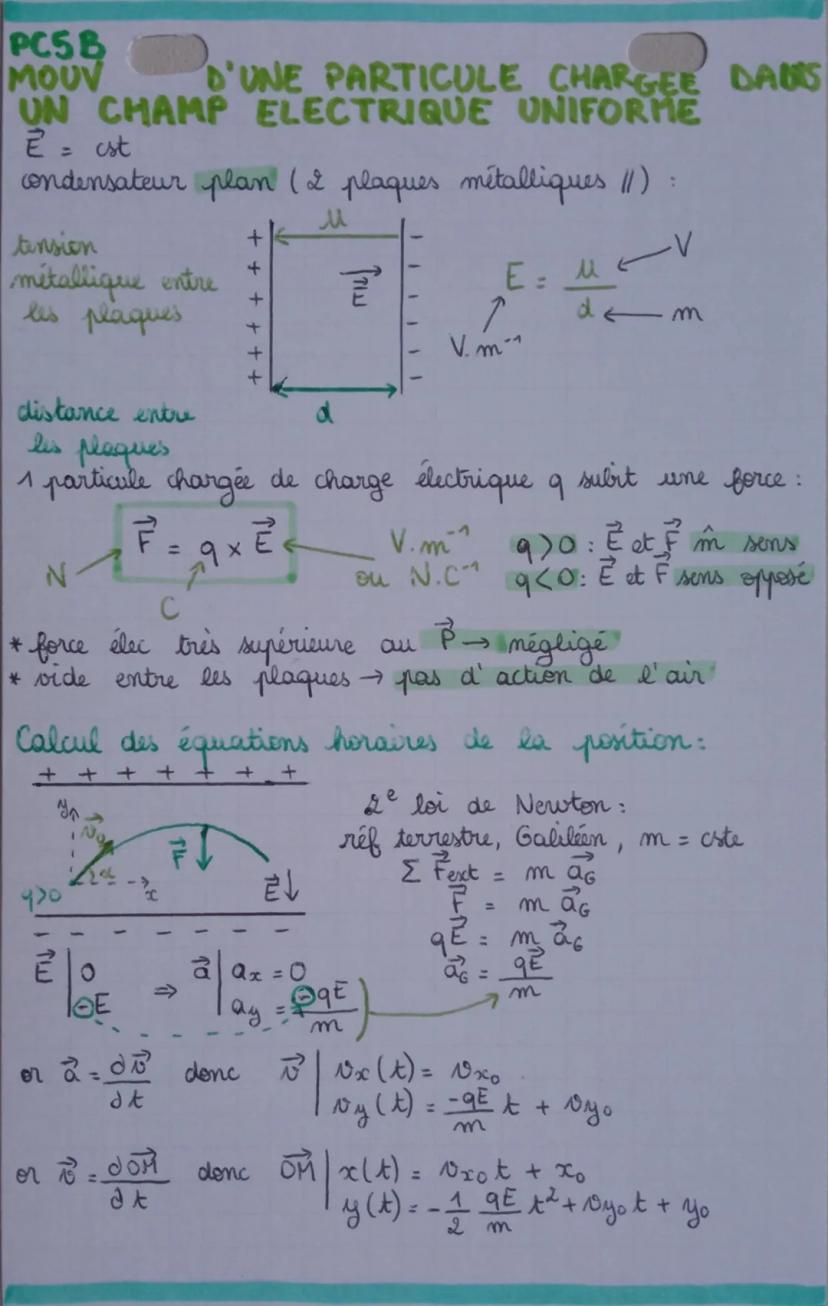 PC5B
MOUV D'UNE PARTICULE CHARGEE DANS
UN CHAMP ELECTRIQUE UNIFORME
E⃗ = cst
condensateur plan (2 plaques métalliques //) :
tension
métallique entre
les plaques
u
+ + + + + +
- - - - - -
E⃗
d
E = u/d
V
m
V.m⁻¹
distance entre
les plaques
1 particule chargée de charge électrique q subit une force :
F⃗ = q x E⃗
N
C
V.m⁻¹
ou N.C⁻¹
q>0 : E⃗ et F⃗ m̂ sens
q<0 : E⃗ et F⃗ sens opposé
* force élec très supérieure au P⃗ → négligé
* vide entre les plaques → pas d'action de l'air
Calcul des équations horaires de la position :
+ + + + + + +
y
v₀⃗
α
x
q>0
F⃗
E⃗
- - - - - - -
2e loi de Newton :
réf terrestre, Galiléen, m = cste
Σ F⃗ext = m a⃗G
F⃗ = m a⃗G
qE⃗ = m a⃗G
a⃗G = qE⃗/m
E⃗ | 0
-E
⇒ a⃗ | ax = 0
ay = -qE/m
or a⃗ = dv⃗/dt donc v⃗ | vx(t) = vx₀
vy(t) = -qE/m t + vy₀
or v⃗ = dOM⃗/dt donc OM⃗ | x(t) = vx₀t + x₀
y(t) = -1/2 qE/m t² + vy₀t + y₀